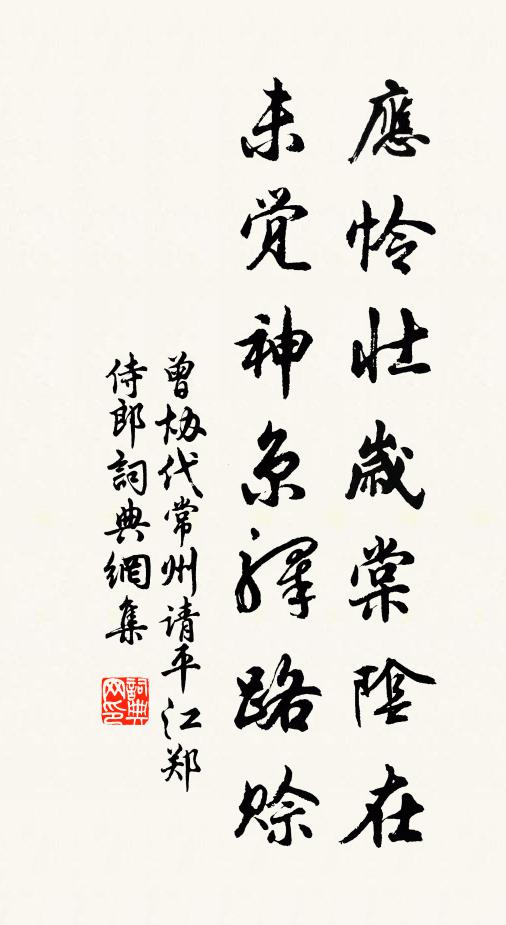 應怜壮歲棠陰在
未觉神京驛路赊
曾協代常州请平江郑
侍郎詞典網集
詞典
网印